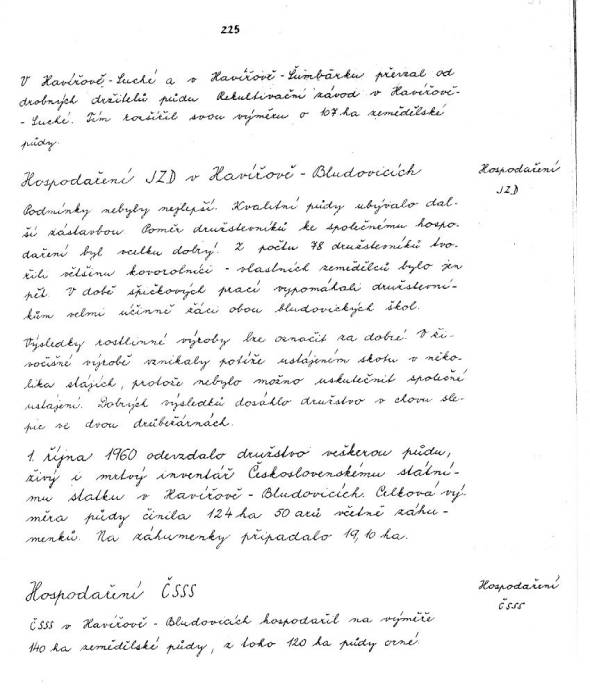 225
V Havířově-Suché a v Havířově-Šumbarku převzal od
drobných držitelů půdu Rekultivační závod v Havířově-
-Suché. Tím rozšířil svou výměru o 107 ha zemědělské
půdy.
Hospodaření JZD v Havířově - Bludovicích
Hospodaření
JZD
Podmínky nebyly nejlepší. Kvalitní půdy ubývalo dal-
ší zástavbou. Poměr družstevníků ke společnému hospo-
daření byl vcelku dobrý. Z počtu 78 družstevníků tvo-
řili většinu kovorolníci - vlastních zemědělců bylo jen
pět. V době špičkových prací vypomáhali družstevní-
kům velmi účinně žáci obou bludovických škol.
Výsledky rostlinné výroby lze označit za dobré. V ži-
vočišné výrobě vznikaly potíže ustájeném skotu v něko-
lika stájích, protože nebylo možno uskutečnit společné
ustájení. Dobrých výsledků dosáhlo družstvo v chovu sle-
pic ve dvou drůbežárnách.
1. října 1960 odevzdalo družstvo veškerou půdu,
živý i mrtvý inventář Československému státní-
mu statku v Havířově - Bludovicích. Celková vý-
měra půdy činila 124 ha 50 arů včetně záhu-
menků. Na záhumenky připadalo 19,10 ha.
Hospodaření ČSSS
Hospodaření
ČSSS
ČSSS v Havířově - Bludovicích hospodařil na výměře
140 ha zemědělské půdy, z toho 120 ha půdy orné